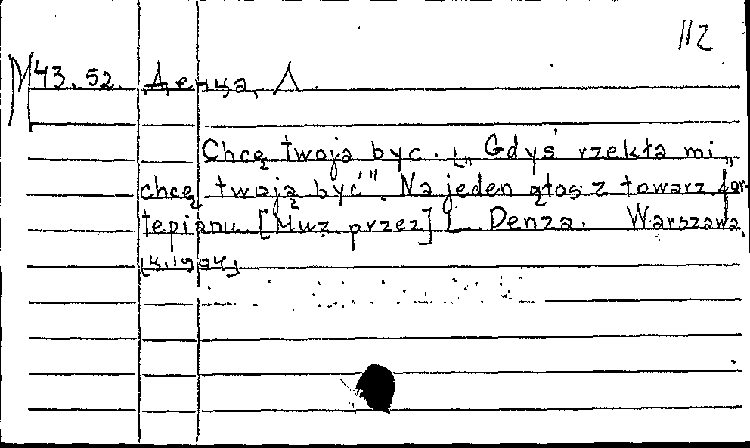 112
M 43.52. Денца, Л.
Chcę twoja byc. „Gdyś rzekła mi „
chcę twoją być". Na jeden głos z towarz for-
tepianu [Muz przez] L Denza. Warszawa,